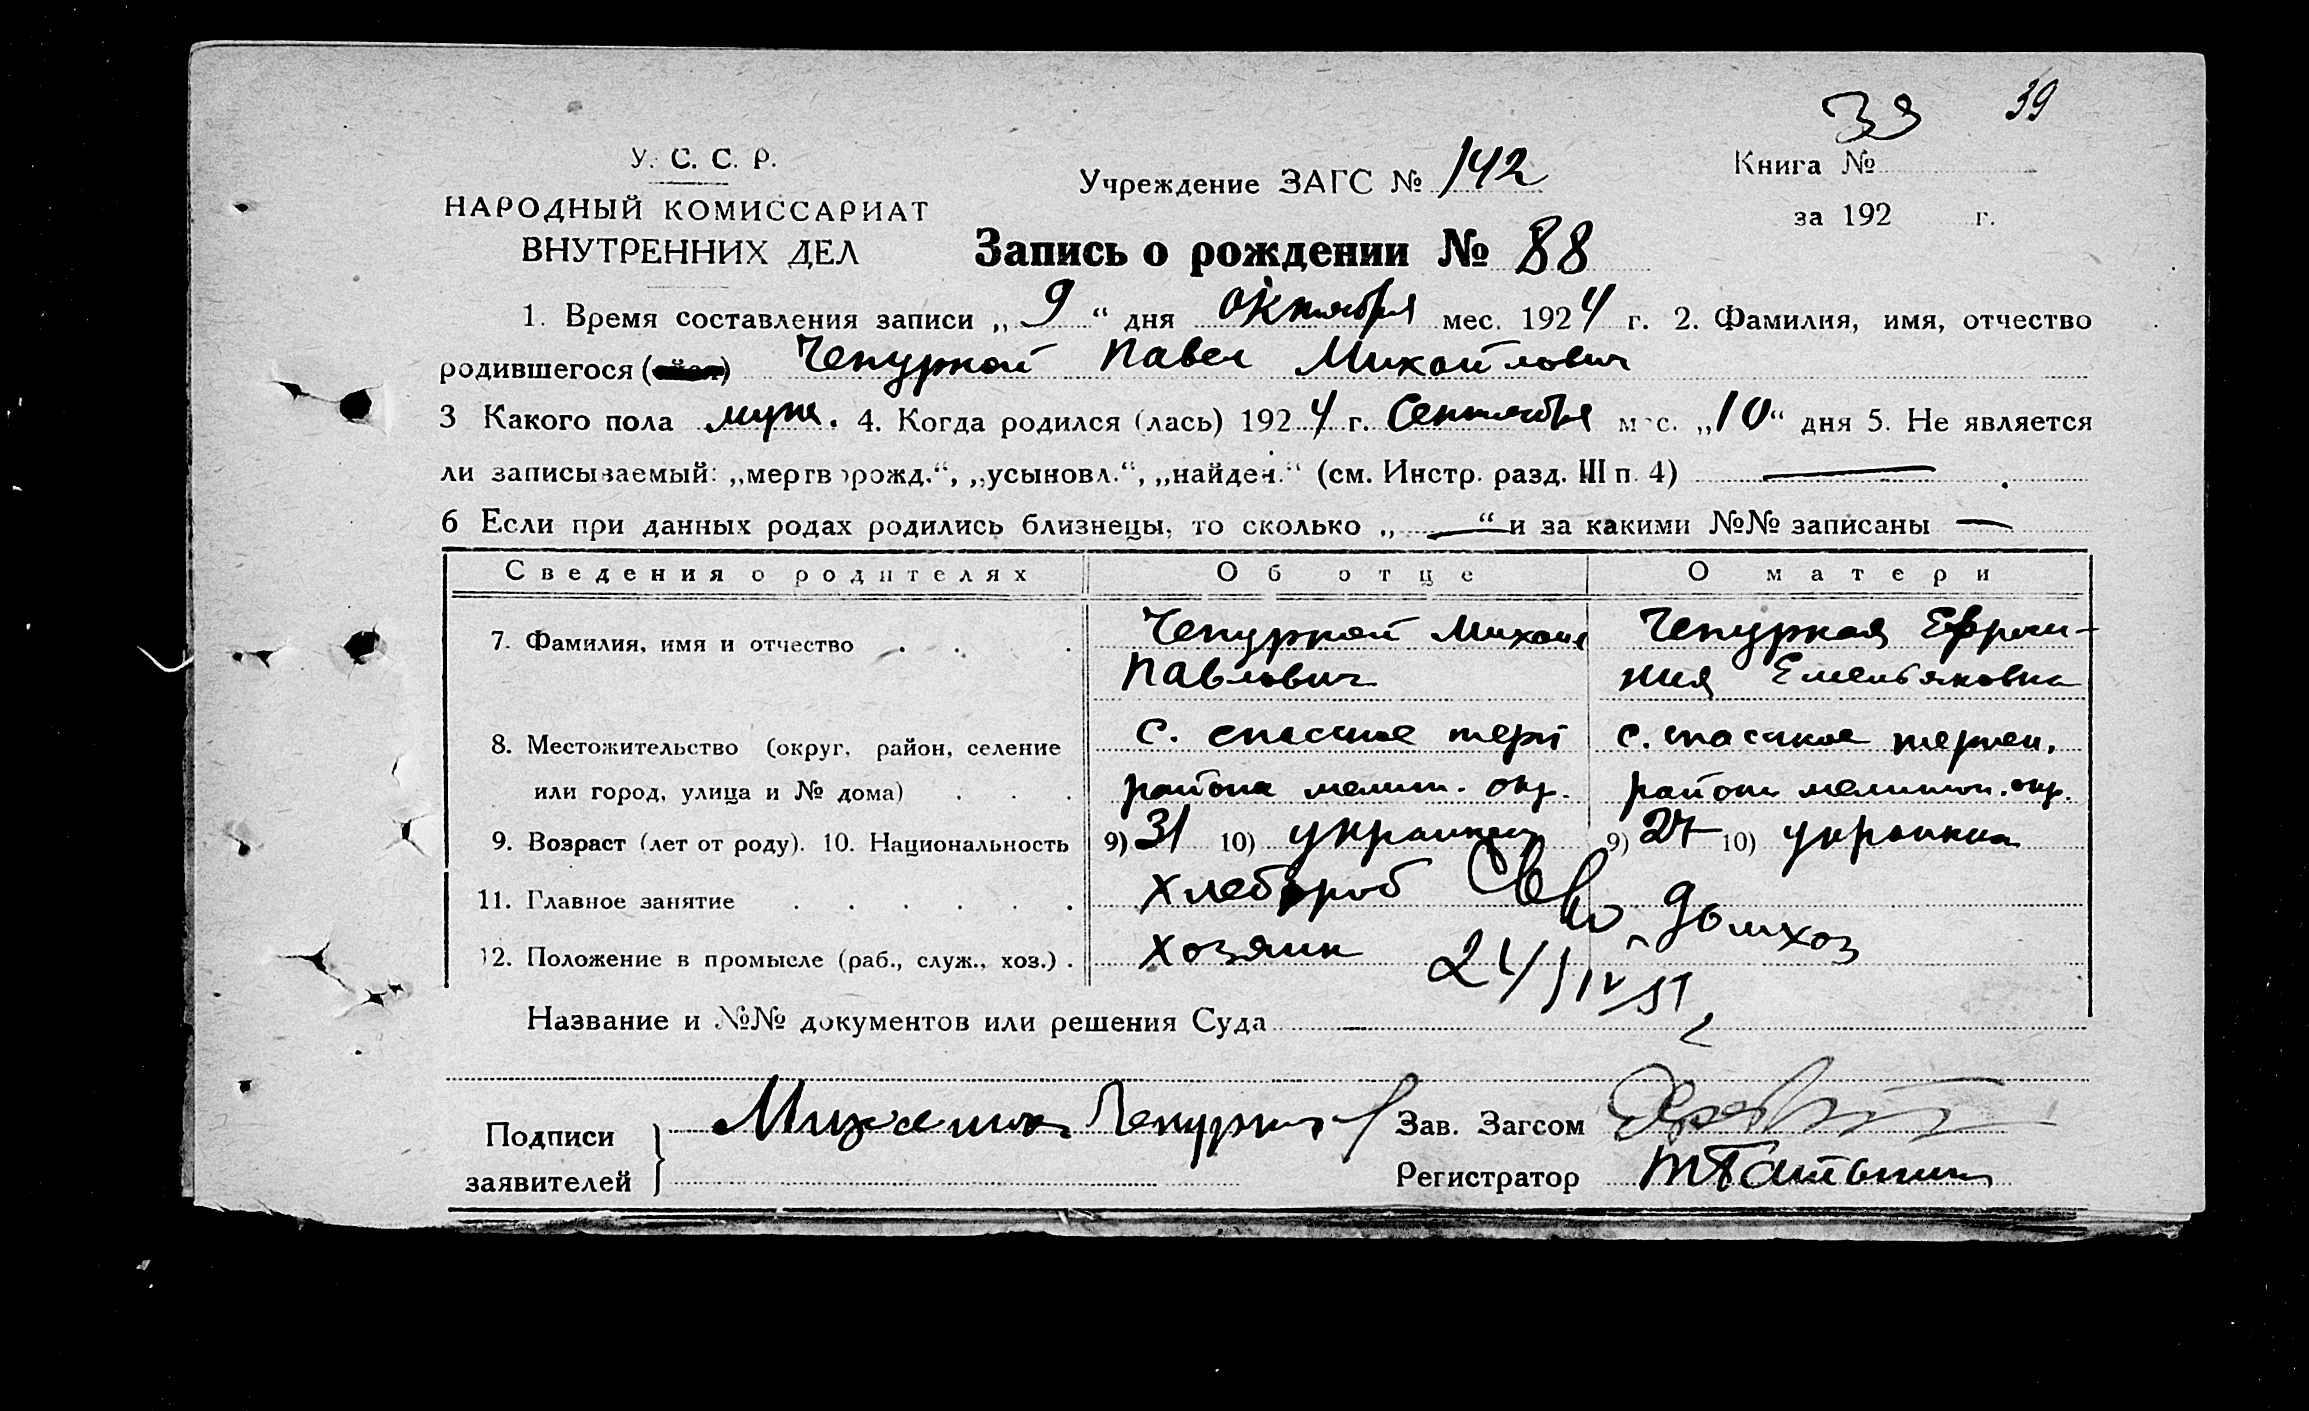 39
39
У. С. С. Р.
НАРОДНЫЙ КОМИССАРИАТ
ВНУТРЕННИХ ДЕЛ
Учреждение ЗАГС № 142
Книга №
за 192 г.
Запись о рождении № 88
1. Время составления записи „ 9 “ дня октября мес. 1924 г. 2. Фамилия, имя, отчество
родившегося ( ) Чепурной Павел Михайлович
3 Какого пола муж. 4. Когда родился (лась) 1924 г. Сентября мес. „10“ дня 5. Не является
ли записываемый: „мертворожд.“, „усыновл.“, „найден.“ (см. Инстр. разд. III п. 4) —
6 Если при данных родах родились близнецы, то сколько „ — “ и за какими №№ записаны —
Сведения о родителях Об отце О матери
7. Фамилия, имя и отчество . . . Чепурной Михаил Чепурная Ефроси-
Павлович ния Емельяновна
8. Местожительство (округ, район, селение с. спасское терп с. спасское терпен.
или город, улица и № дома) . . . района мелит. окр. района мелитоп. окр.
9. Возраст (лет от роду). 10. Национальность 9) 31 10) украинец 9) 27 10) украинка
11. Главное занятие . . . . . . Хлебороб домхоз
12. Положение в промысле (раб., служ., хоз.) . хозяин
24/IV 51
Название и №№ документов или решения Суда
Подписи
заявителей
Михаил Чепурной
Зав. Загсом
Регистратор